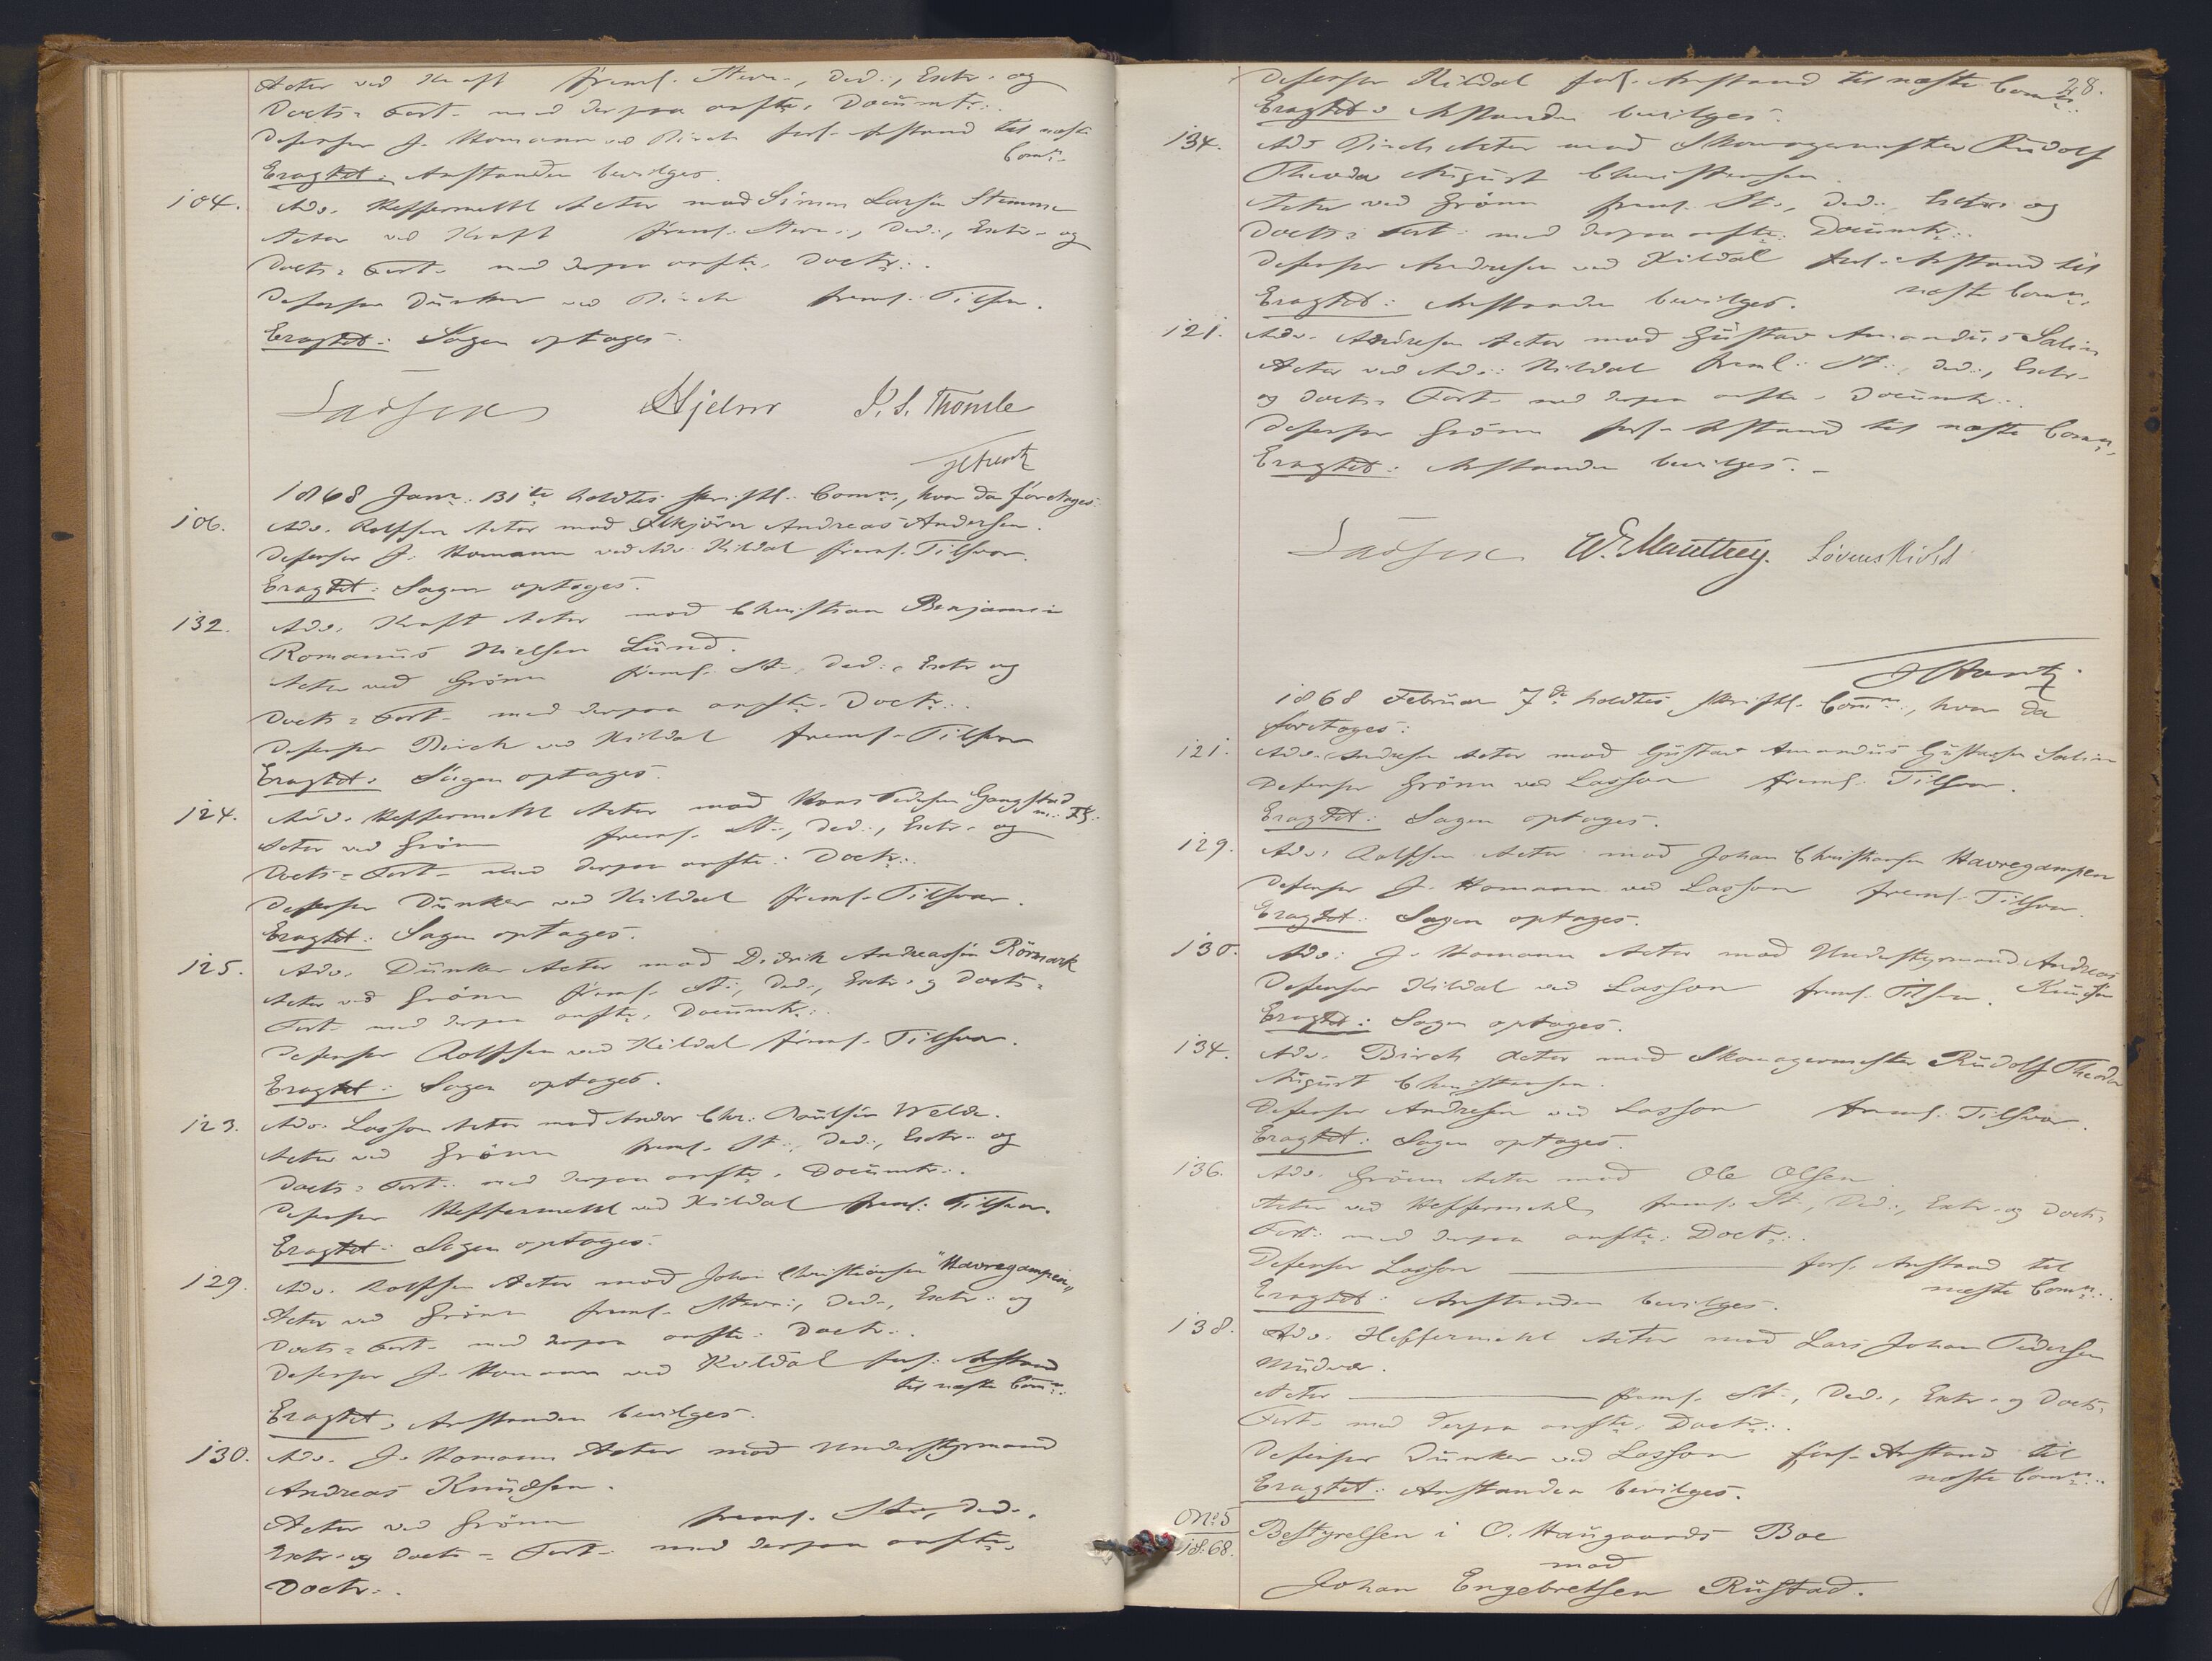 Actor ved Kraft freml. Stevn., Ded:, Extr. og
Docts: Fort. med derpaa anftr. Documtr:.
Defensor J. Homann ved Birch forl. Anstand til næste
Comn:.
Eragtet: Anstanden bevilges.
104. Adv. Heffermehl Actor mod Simon Larsen Stemme
Actor ved Kraft freml. Stevn:, Ded:, Extr. og
Docts: Fort. med derpaa anftr. Doctr:.
Defensor Dunker ved Birch freml. Tilsv.
Eragtet: Sagen optages.
Lassen Hjelm J. S. Thomle
1868 Janr. 31te holdtes skriftl. Comn:, hvor da foretages:
106. Adv. Rolfsen Actor mod Andreas Andersen.
Defensor J. Homann ved Adv. Kildal freml. Tilsvar.
Eragtet: Sagen optages.
132. Adv. Kraft Actor mod Christian Benjamin
Romanus Nielsen Lund.
Actor ved Grönn freml. St., Ded:, Extr og
Docts: Fort. med derpaa anftr. Doctr:.
Defensor Birch ved Kildal freml. Tilsvar
Eragtet: Sagen optages.
124. Adv. Heffermehl Actor mod Hans Pedersen Gangstad
m: Fl:.
Actor ved Grönn freml. St., Ded:, Extr. og
Docts: Fort. med derpaa anftr: Doctr:.
Defensor Dunker ved Kildal freml. Tilsvar.
Eragtet: Sagen optages.
125. Adv. Dunker Actor mod Didrik Andreassen Rörmark
Actor ved Grönn freml. St., Ded:, Extr. og Docts:
Fort. med derpaa anftr. Documtr:.
Defensor Rolfsen ved Kildal freml. Tilsvar.
Eragtet: Sagen optages.
123. Adv. Lasson Actor mod Andor Chr. Poulsen Welde.
Actor ved Grönn freml. St., Ded:, Extr. og
Docts: Fort. med derpaa anftr. Documtr:.
Defensor Heffermehl ved Kildal freml: Tilsvar.
Eragtet: Sagen optages.
129. Adv. Rolfsen Actor mod Johan Christiansen "Havregampen"
Actor ved Grönn freml. Stevn:, Ded., Extr: og
Docts: Fort. med derpaa anftr: Doctr:.
Defensor J. Homann ved Kildal forl: Anstand
til næste Comn:.
Eragtet: Anstanden bevilges.
130. Adv. J. Homann Actor mod Understyrmand
Andreas Knudsen.
Actor ved Grönn freml. Stv., Ded.,
Extr. og Docts: Fort. med derpaa anftr.
Doctr:.
28.
Defensor Kildal forl. Anstand til næste Comn:.
Eragtet: Anstanden bevilges.
134. Adv Birch Actor mod Skomagermester Rudolf
Theodor August Christensen.
Actor ved Grönn freml. St., Ded:, Extr. og
Docts: Fort. med derpaa anftr. Documtr:.
Defensor Andresen ved Kildal forl. Anstand til
næste Comn:.
Eragtet: Anstanden bevilges.
121. Adv. Andresen Actor mod Gustav Amandus Salin
Actor ved Adv: Kildal freml: St:, Ded:, Extr.
og Docts: Fort. med derpaa anftr. Documtr:.
Defensor Grönn forl. Anstand til næste Comn:.
Eragtet: Anstanden bevilges.
Lassen W. E. Manthey. Løvenskiold
1868 Februar 7de holdtes skriftl. Comn:, hvor da
foretoges:
121. Adv. Andresen Actor mod Gustav Amandus Gustavsen Salin
Defensor Grönn ved Lasson freml. Tilsvar.
Eragtet: Sagen optages.
129. Adv. Rolfsen Actor mod Johan Christiansen Havregampen
Defensor J. Homann ved Lasson freml. Tilsvar.
Eragtet: Sagen optages.
130. Adv: J. Homann Actor mod Understyrmand Andreas
Knudsen
Defensor Kildal ved Lasson freml. Tilsv.
Eragtet: Sagen optages.
134. Adv. Birch Actor mod Skomagermester Rudolf Theodor
August Christensen.
Defensor Andresen ved Lasson freml. Tilsvar.
Eragtet: Sagen optages.
136. Adv. Grönn Actor mod Ole Olsen
Actor ved Heffermehl freml. St., Ded., Extr. og Docts:
Fort: med derpaa anftr: Doctr:.
Defensor Lasson forl. Anstand til
næste Comn:.
Eragtet: Anstanden bevilges.
138. Adv. Heffermehl Actor mod Lars Johan Pedersen
Mudvær.
Actor freml. St., Ded., Extr. og Docts:
Fort. med derpaa anftr. Doctr:.
Defensor Dunker ved Lasson forl. Anstand til
næste Comn:.
Eragtet: Anstanden bevilges.
No 5
1868. Bestyrelsen i O. Haugaards Boe
mod
Johan Engebretsen Rustad.